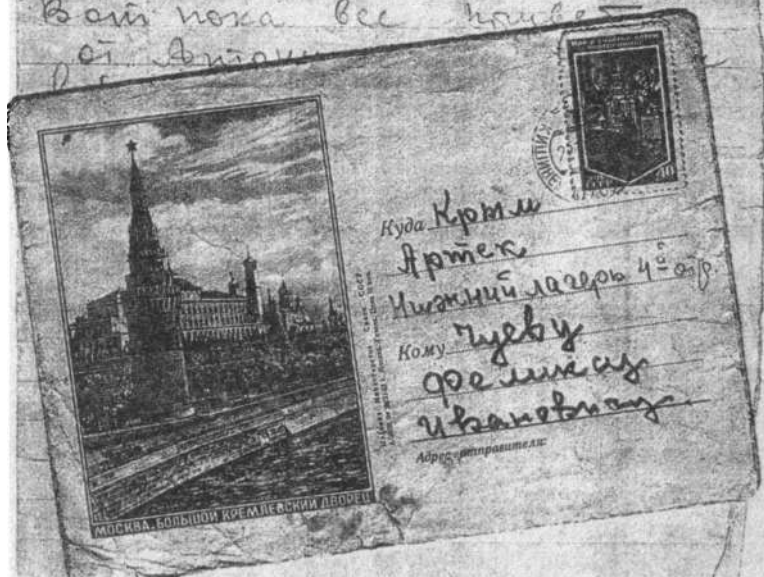 Вот пока все привет
от
Куда Крым
Артек
Нижний лагерь 4ый отр.
Кому Чуеву
Феликсу
Ивановичу.
Адрес отправителя:
МОСКВА. БОЛЬШОЙ КРЕМЛЕВСКИЙ ДВОРЕЦ